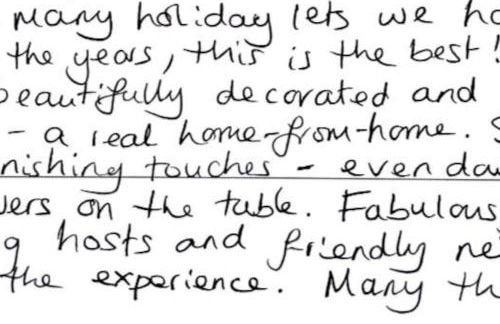 many holiday lets we
the years, this is the best!
beautifully decorated and
- a real home-from-home.
touches - even
on the table. Fabulous
hosts and friendly
the experience. Many